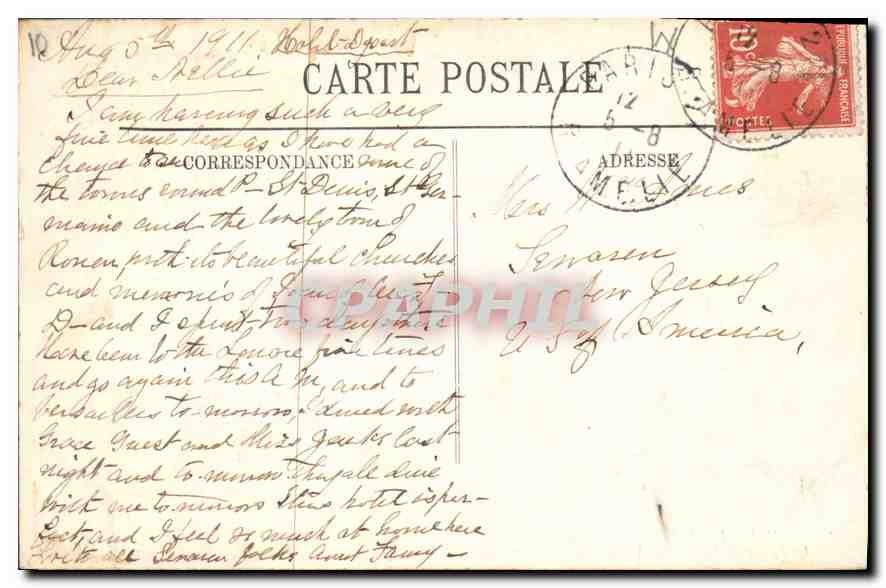 Aug 5th 1911. Hotel-D
Dear Nellie
I am having such a very
fine time here as I have had a
CARTE POSTALE
CORRESPONDANCE
some of
the towns round P- St Denis, St Ger-
maine and the lovely town of
Rouen with its beautiful churches
and memories of
D- and I spent two days there
Have been to the Louvre five times
and go again this A M, and to
Versailles to-morrow, I dined with
Grace Guest and Miss last
night and to-morrow They all dine
with me to morrow This hotel is per-
fect, and I feel so much at home here
with all folks Aunt Fanny-
ADRESSE
Mrs
New Jersey
U S of America,
PARIS
12
5 -8
AMELIE
10c
POSTES
RÉPUBLIQUE FRANÇAISE
CPAPHIL